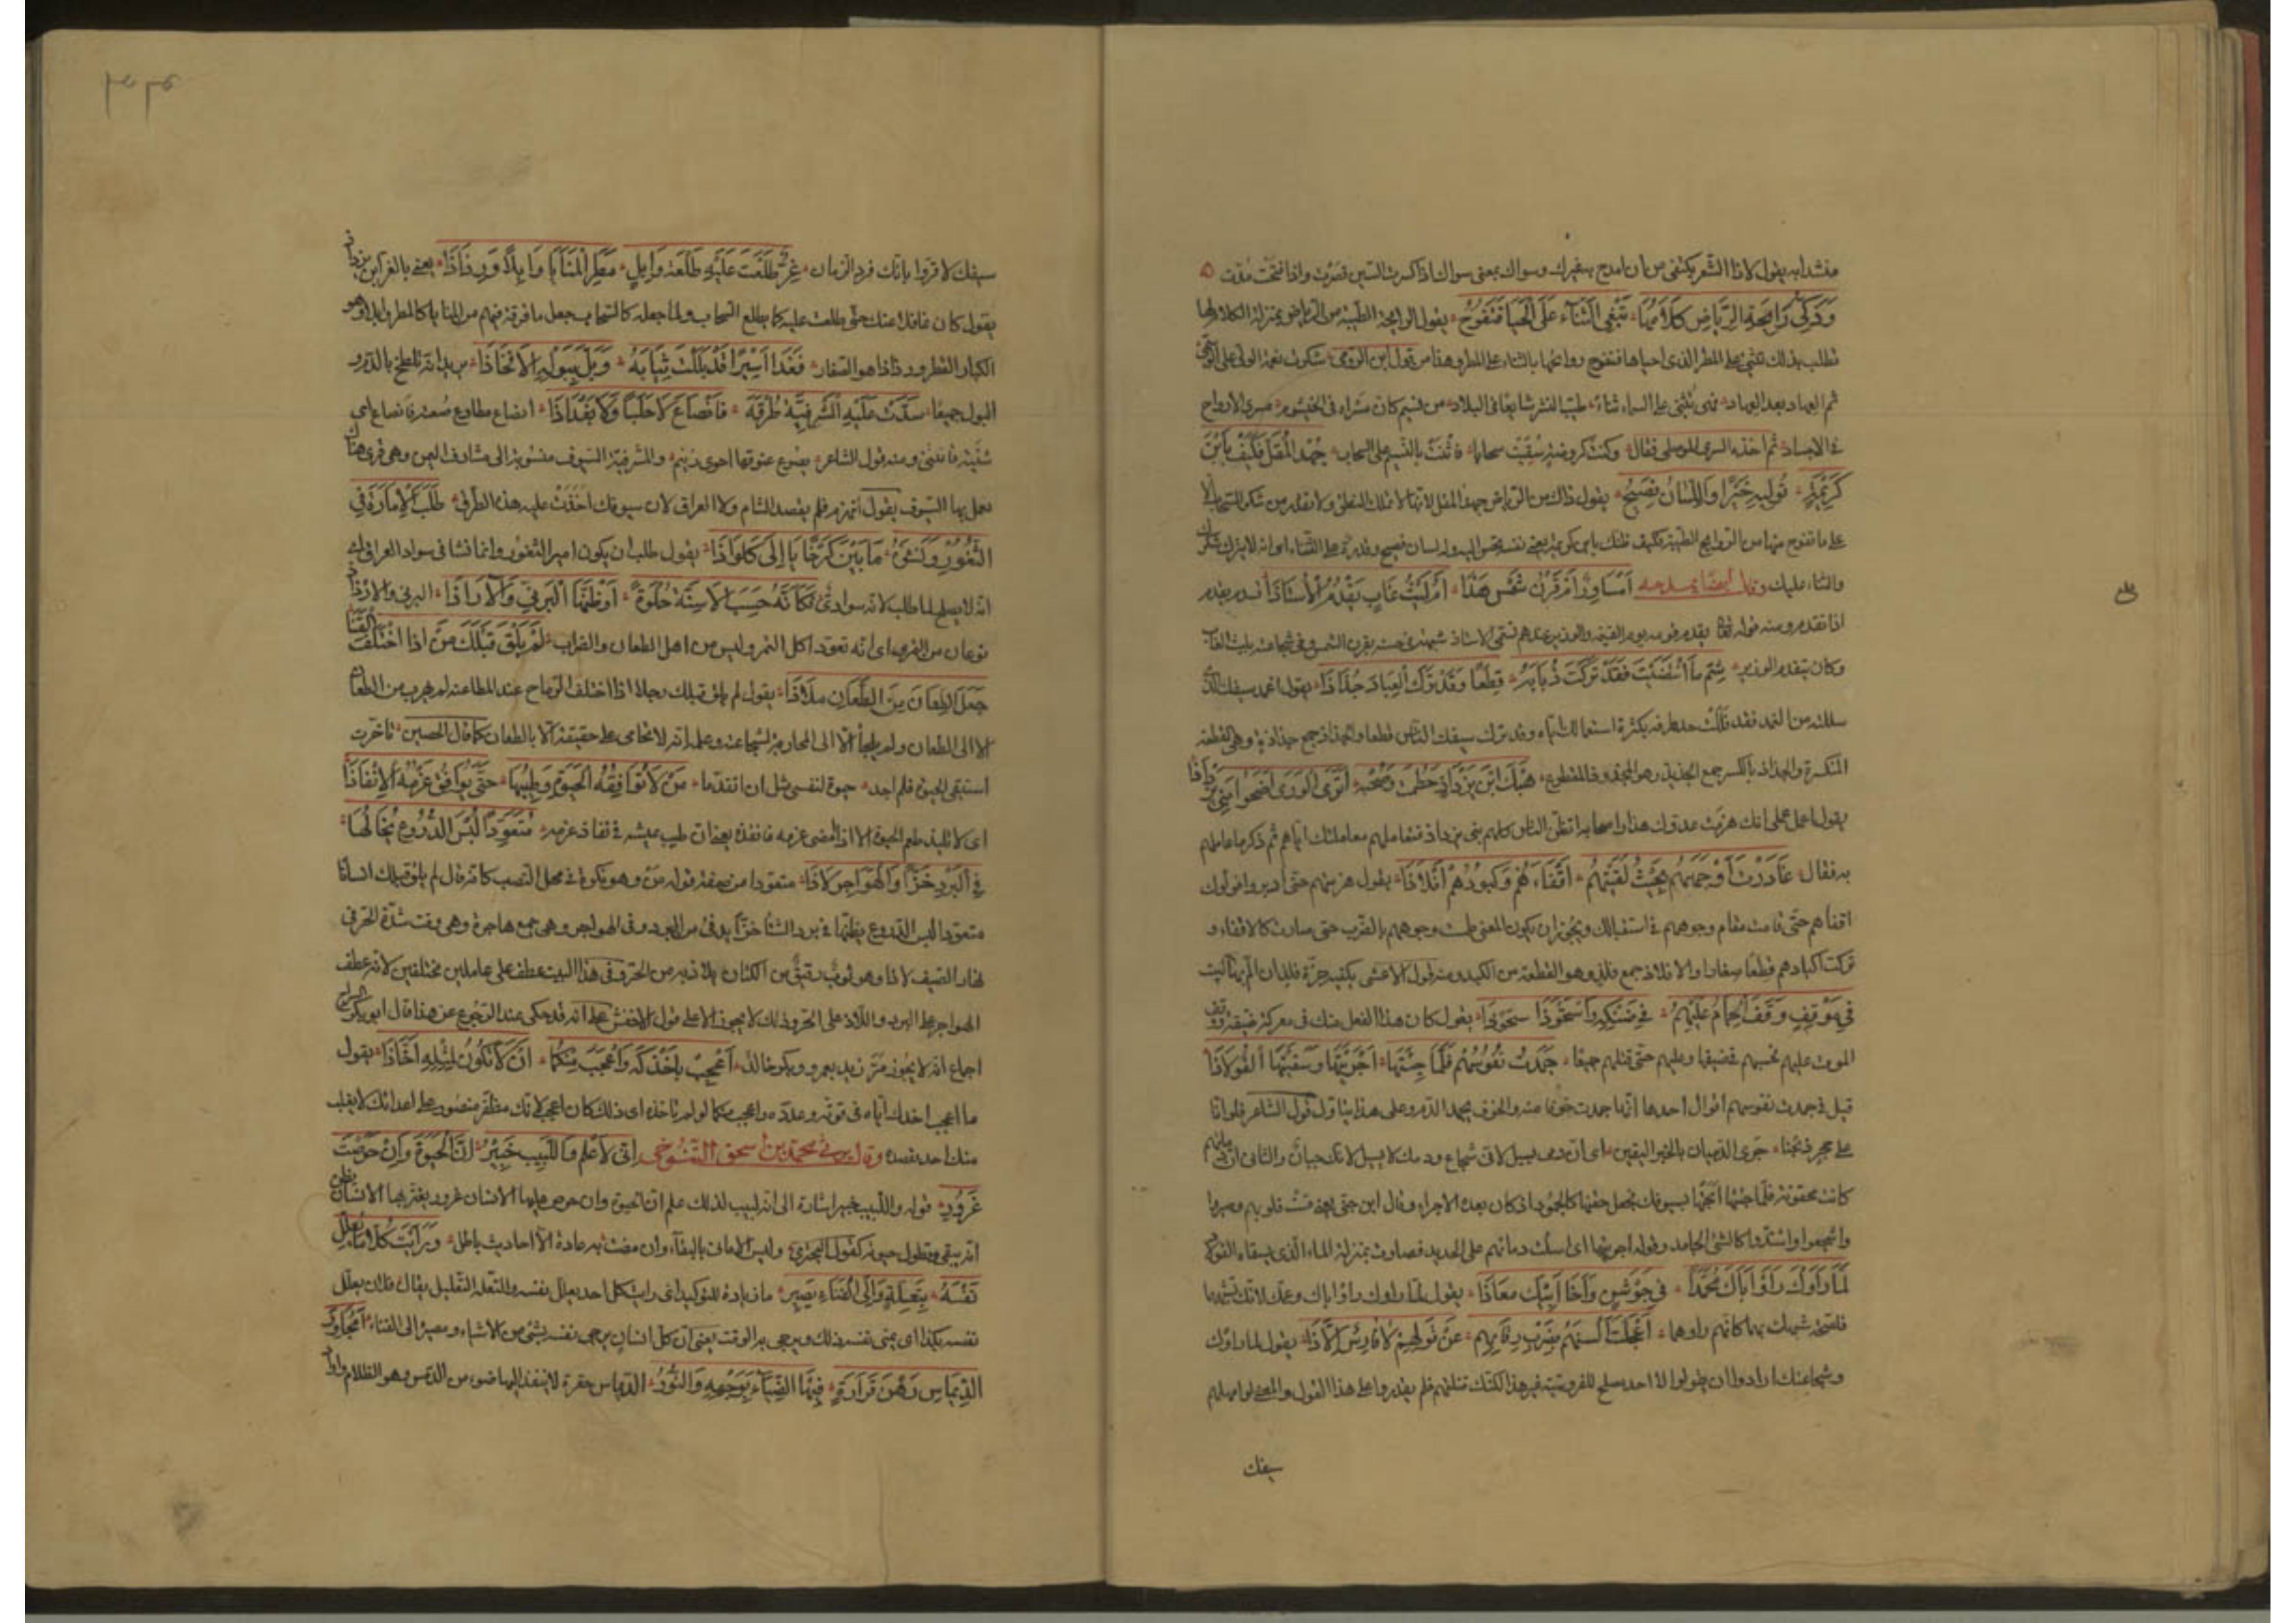 منشدا به يقول لاذا الشعر يكتفى من ان امدح به غيرك وسواك بمعنى سواك اذا كسرت السين قصرت واذا فتحت مددت
وَذَكِيُّ رَائِحَةِ الرِّيَاضِ كَلَامُهَا تَبْغِي الثَّنَاءَ عَلَى الْحَيَا فَتَفُوحُ يقول الرايحة الطيبة من الرياض بمنزلة الكلام لها
تطلب بذلك تثنى على المطر الذى احياها فتفوح روائحها بالثناء على المطر وهذا من قول ابن الرومى شكرت نعمة الولى على الوسمى
ثم العهاد بعد العهاد فهى تثنى على السماء ثناء طيب النشر شايعا فى البلاد من نسيم كان مسراه فى الخيشوم مسرى الارواح
فى الاجساد ثم اخذه السرى الموصلى فقال وكنت كروضة سقيت سحابا فاثنت بالنسيم على السحاب جُهْدُ الْمُقِلِّ فَكَيْفَ بِابْنِ
كَرِيمَةٍ تُولِيهِ خَيْرًا وَاللِّسَانُ فَصِيحُ يقول ذاك من الرياض جهد المقل لانها لا تملك النطق ولا تقدر من شكر السحاب الا
على ما تفوح منها من الروايح الطيبة فكيف ظنك بابن كريمة يعنى نفسه تحسن اليه وله لسان فصيح وقدرة على الثناء اى انه لا يترك شكرك
والثناء عليك وقال ايضا يمدحه أَمُسَاوِرٌ أَمْ قَرْنُ شَمْسٍ هَذَا أَمْ لَيْثُ غَابٍ يَقْدُمُ الْأُسْتَاذَا قدم يقدم
اذا تقدم ومنه قوله تعالى يقدم قومه يوم القيمة والوزير عندهم يسمى الاستاذ شبهه فى حسنه بقرن الشمس وفى شجاعته بليث الغاب
وكان يتقدم الوزير شِمْ مَا انْتَضَيْتَ فَقَدْ تَرَكْتَ ذُبَابَهُ قِطَعًا وَقَدْ تَرَكَ الْعِبَادَ جُذَاذَا يقول اغمد سيفك الذى
سللته من الغمد فقد فللت حد طرفه بكثرة استعمالك اياه وقد ترك سيفك الناس قطعا والجذاذ جمع جذاذة وهى القطعة
المنكسرة والجذاذ بالكسر جمع الجذيذ وهو المجذوذ المقطوع هَبْكَ ابْنَ يَزْدَاذٍ حَطَمْتَ وَصَحْبَهُ أَتَرَى الْوَرَى أَضْحَوْا بَنِي يَزْدَاذَا
يقول اعمل على انك هزمت عدوك هذا واصحابه اتظن الناس كلهم بنى يزداذ فتعاملهم معاملتك اياهم ثم ذكر ما عاملهم
به فقال غَادَرْتَ أَوْجُهَهُمْ بِحَيْثُ لَقِيتَهُمْ أَقْفَاءَهُمْ وَكُبُودَهُمْ أَفْلَاذَا يقول هزمتهم حتى ادبروا فولوك
اقفاهم حتى قامت مقام وجوههم فى استقبالك ويجوز ان يكون المعنى طمست وجوههم بالضرب حتى صارت كالاقفاء و
تركت اكبادهم قطعا صغارا والافلاذ جمع فلذ وهو القطعة من الكبد ومنه قول الاعشى تكفيه حزة فلذ ان الم بها البيت
فِي مَوْقِفٍ وَقَفَ الْحِمَامُ عَلَيْهِمِ فِي ضَنْكِهِ وَاسْتَحْوَذَ اسْتِحْوَاذَا يقول كان هذا الفعل منك فى معركة ضيقة وقف
الموت عليهم فحبسهم فى ضيقها وغلبهم حتى قتلهم جميعا جَمَدَتْ نُفُوسُهُمُ فَلَمَّا جِئْتَهَا أَجْرَيْتَهَا وَسَقَيْتَهَا الْفُولَاذَا
قيل فى جمدت نفوسهم اقوال احدها انها جمدت خوفا منه والخوف يجمد الدم وعلى هذا يتاول قول الشاعر فلو انا
على حجر ذبحنا جرى الدميان بالخبر اليقين اى ان دمى يسيل لانى شجاع ودمك لا يسيل لانك جبان والثانى ان دماءهم
كانت محقونة فلما جئتها ابحتها بسيوفك فجعل حقنها كالجمود اذ كان بعده الاجراء وقال ابن جنى يعنى قست قلوبهم وصبروا
واشتدوا كالشئ الجامد وقوله اجريتها اى اسلت دمائهم على الحديد فصارت بمنزلة الماء الذى يسقاه الفولاذ
لَمَّا رَأَوْكَ رَأَوْا أَبَاكَ مُحَمَّدًا فِي جَوْشَنٍ وَأَخَا أَبِيكَ مُعَاذَا يقول لما راوك راوا اباك وعمك لانك تشبههما
فلصحة شبهك بهما كانهم راوهما أَعْجَلْتَ أَلْسُنَهُمْ بِضَرْبِ رِقَابِهِمْ عَنْ قَوْلِهِمْ لَا فَارِسٌ إِلَّا ذَا يقول لما راوك
وشجاعتك ارادوا ان يقولوا لا احد يصلح للفروسية غير هذا لكنك قتلتهم فلم يقدروا على هذا القول والمعنى لو امهلهم
سيفك
سيفك لاقروا بانك فرد الزمان غِرٌّ طَلَعْتَ عَلَيْهِ طَلْعَةَ وَابِلٍ مَطَرَ الْمَنَايَا وَابِلًا وَرَذَاذَا يعنى بالغر ابن يزداذ
يقول كان غافلا عنك حتى طلعت عليه كما يطلع السحاب ولما جعله كالسحاب جعل ما فرقته فيهم من المنايا كالمطر وابلا وهو
الكبار القطر ورذاذا هو الصغار فَغَدَا أَسِيرًا قَدْ بَلَلْتَ ثِيَابَهُ بِدَمٍ وَبَلَّ بِبَوْلِهِ الْأَفْخَاذَا يريد انه تلطخ بالدم و
البول جميعا سَدَّتْ عَلَيْهِ الْمَشْرَفِيَّةُ طُرْقَهُ فَانْصَاعَ لَا حَلَبًا وَلَا بَغْدَاذَا انصاع مطاوع صعته فانصاع اى
ثنيته فانثنى ومنه قول الشاعر يصوع عنوقها احوى زنيم والمشرفية السيوف منسوبة الى مشارف اليمن وهى قرى هناك
يعمل بها السيوف يقول انهزم فلم يقصد الشام ولا العراق لان سيوفك اخذت عليه هذه الطرق طَلَبَ الْإِمَارَةَ فِي
الثُّغُورِ وَنَشْؤُهُ مَا بَيْنَ كَرْخَايَا إِلَى كَلْوَاذَا يقول طلب ان يكون امير الثغور وانما نشا فى سواد العراق اى
انه لا يصلح لما طلب لانه سوادى فَكَأَنَّهُ حَسِبَ الْأَسِنَّةَ حُلْوَةً أَوْ ظَنَّهَا الْبَرْنِيَّ وَالْآزَاذَا البرنى والازاذ
نوعان من التمر اى انه تعود اكل التمر وليس من اهل الطعان والضراب لَمْ يَلْقَ قَبْلَكَ مَنْ إِذَا اخْتَلَفَ الْقَنَا
جَعَلَ الطِّعَانَ مِنَ الطِّعَانِ مَلَاذَا يقول لم يلق قبلك رجلا اذا اختلف الرماح عند المطاعنة لم يهرب من الطعان
الا الى الطعان ولم يلجا الا الى المحاربة لشجاعته وعلمه انه لا يحامى على حقيقته الا بالطعان كما قال الحصين تاخرت
استبقى الحيوة فلم اجد حيوة لنفسى مثل ان اتقدما مَنْ لَا تُوَافِقُهُ الْحَيَوةُ وَطِيبُهَا حَتَّى يُوَافِقَ عَزْمُهُ الْإِنْفَاذَا
اى لا يلذ طعم الحيوة الا اذا امضى عزمه فانفذه يعنى ان طيب عيشه فى نفاذ عزمه مُتَعَوِّدًا لُبْسَ الدُّرُوعِ يَخَالُهَا
فِي الْبَرْدِ خَزًّا وَالْهَوَاجِرِ لَاذَا متعودا من صفة قوله من وهو نكرة فى محل النصب كانه قال لم يلق قبلك انسانا
متعودا لبس الدروع يظنها فى برد الشتا خزا يدفئ من البرد وفى الهواجر وهى جمع هاجرة وهى وقت شدة الحر فى
نهار الصيف لاذا وهو ثوب رقيق من الكتان يلاذ به من الحر وفى هذا البيت عطف على عاملين مختلفين لانه عطف
الهواجر على البرد واللاذ على الخز وذلك لا يجوز الا على قول الاخفش على انه قد حكى عنه الرجوع عن هذا قال ابو بكر السراج
اجماع انه لا يجوز مر زيد بعمرو وبكر خالد أَعْجِبْ بِأَخْذِكَهُ وَأَعْجَبُ مِنْكُمَا أَنْ لَا تَكُونَ لِمِثْلِهِ أَخَّاذَا يقول
ما اعجب اخذك اياه فى قوته وعدده واعجب منكما لو لم تاخذه اى ذلك كان اعجب لانك مظفر منصور على اعدائك لا يفلت
منك احد تقصده وقال يرثى محمد بن اسحق التنوخى إِنِّي لَأَعْلَمُ وَاللَّبِيبُ خَبِيرُ أَنَّ الْحَيَوةَ وَإِنْ حَرَصْتَ
غُرُورُ قوله واللبيب خبير اشارة الى انه لبيب لذلك علم ان الحيوة وان حرص عليها الانسان غرور يغتر بها الانسان يظن
انه يبقى وتطول حيوته كقول البحترى وليس الامانى بالبقاء وان مضت به عادة الا احاديث باطل وَرَأَيْتُ كُلًّا مَا يُعَلِّلُ
نَفْسَهُ بِتَعِلَّةٍ وَإِلَى الْفَنَاءِ يَصِيرُ ما زيادة للتوكيد اى رايت كل احد يعلل نفسه والتعلة التعليل يقال فلان يعلل
نفسه بكذا اى يمنى نفسه ذلك ويرجى به الوقت يعنى ان كل انسان يرجى نفسه بشئ من الاشياء ومصيره الى الفناء أَمُجَاوِرَ
الدِّيمَاسِ رَهْنَ قَرَارَةٍ فِيهَا الضِّيَاءُ بِوَجْهِهِ وَالنُّورُ الديماس حفرة لا ينفذ اليها ضوء من الدمس وهو الظلام واراد